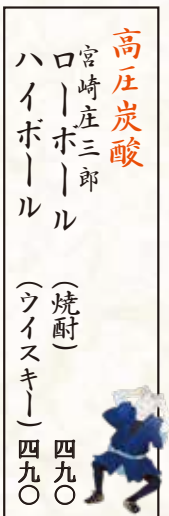 高圧炭酸
宮崎庄三郎
ローボール（焼酎）四九〇
ハイボール（ウイスキー）四九〇